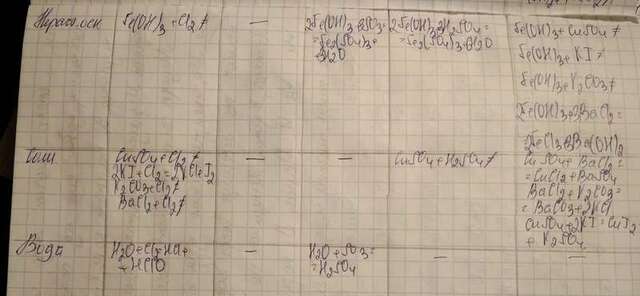 Нераств. осн
Fe(OH)3 + Cl2 ≠
—
2Fe(OH)3 + 3SO3 =
= Fe2(SO4)3 +
+ 3H2O
2Fe(OH)3 + 3H2SO4 =
= Fe2(SO4)3 + 6H2O
Fe(OH)3 + CuSO4 ≠
Fe(OH)3 + KI ≠
Fe(OH)3 + K2CO3 ≠
2Fe(OH)3 + 3BaCl2 =
= 2FeCl3 + 3Ba(OH)2
Соли
CuSO4 + Cl2 ≠
2KI + Cl2 = 2KCl + I2
K2CO3 + Cl2 ≠
BaCl2 + Cl2 ≠
—
—
CuSO4 + H2SO4 ≠
CuSO4 + BaCl2 =
= CuCl2 + BaSO4
BaCl2 + K2CO3 =
= BaCO3 + 2KCl
CuSO4 + 2KI = CuI2
+ K2SO4
Вода
H2O + Cl2 = HCl +
+ HClO
—
H2O + SO3 =
= H2SO4
—
—